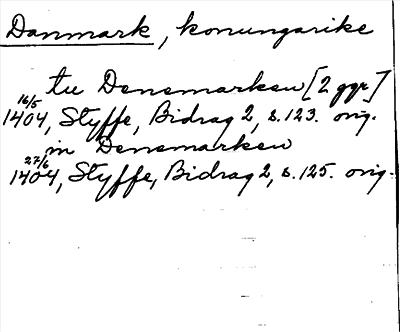 Danmark, konungarike
tu Densmarken [2 ggr]
16/5
1404, Styffe, Bidrag 2, s. 123. orig.
in Densmarken
27/6
1404, Styffe, Bidrag 2, s. 125. orig.